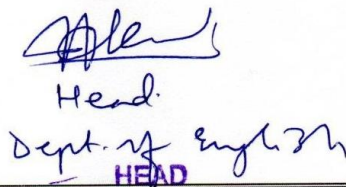 Head.
Dept. of English
HEAD